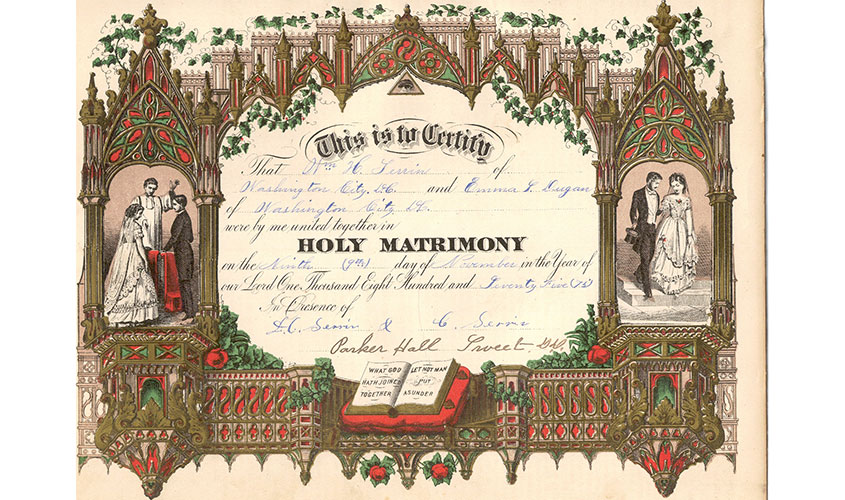 This is to Certify
That Wm H. Serrin of
Washington City, D.C. and Emma F. Dugan
of Washington City D.C.
were by me united together in
HOLY MATRIMONY
on the Ninth (9th) day of November in the Year of
our Lord One Thousand Eight Hundred and Seventy Five (75)
In Presence of
C. Serrin & C. Serrin
Parker Hall Sweet, D.D.
WHAT GOD HATH JOINED TOGETHER
LET NOT MAN PUT ASUNDER